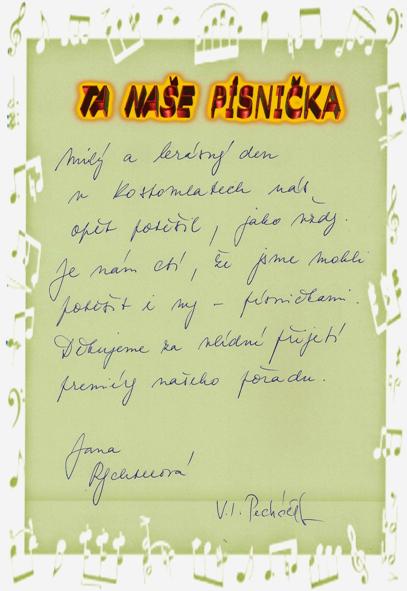 TA NAŠE PÍSNIČKA
Milý a krásný den
v Kostomlatech nás
opět potěšil, jako vždy.
Je nám ctí, že jsme mohli
potěšit i my – písničkami.
Děkujeme za vlídné přijetí
premiéry našeho pořadu.
Jana
Rychterová
V.I. Pecháček